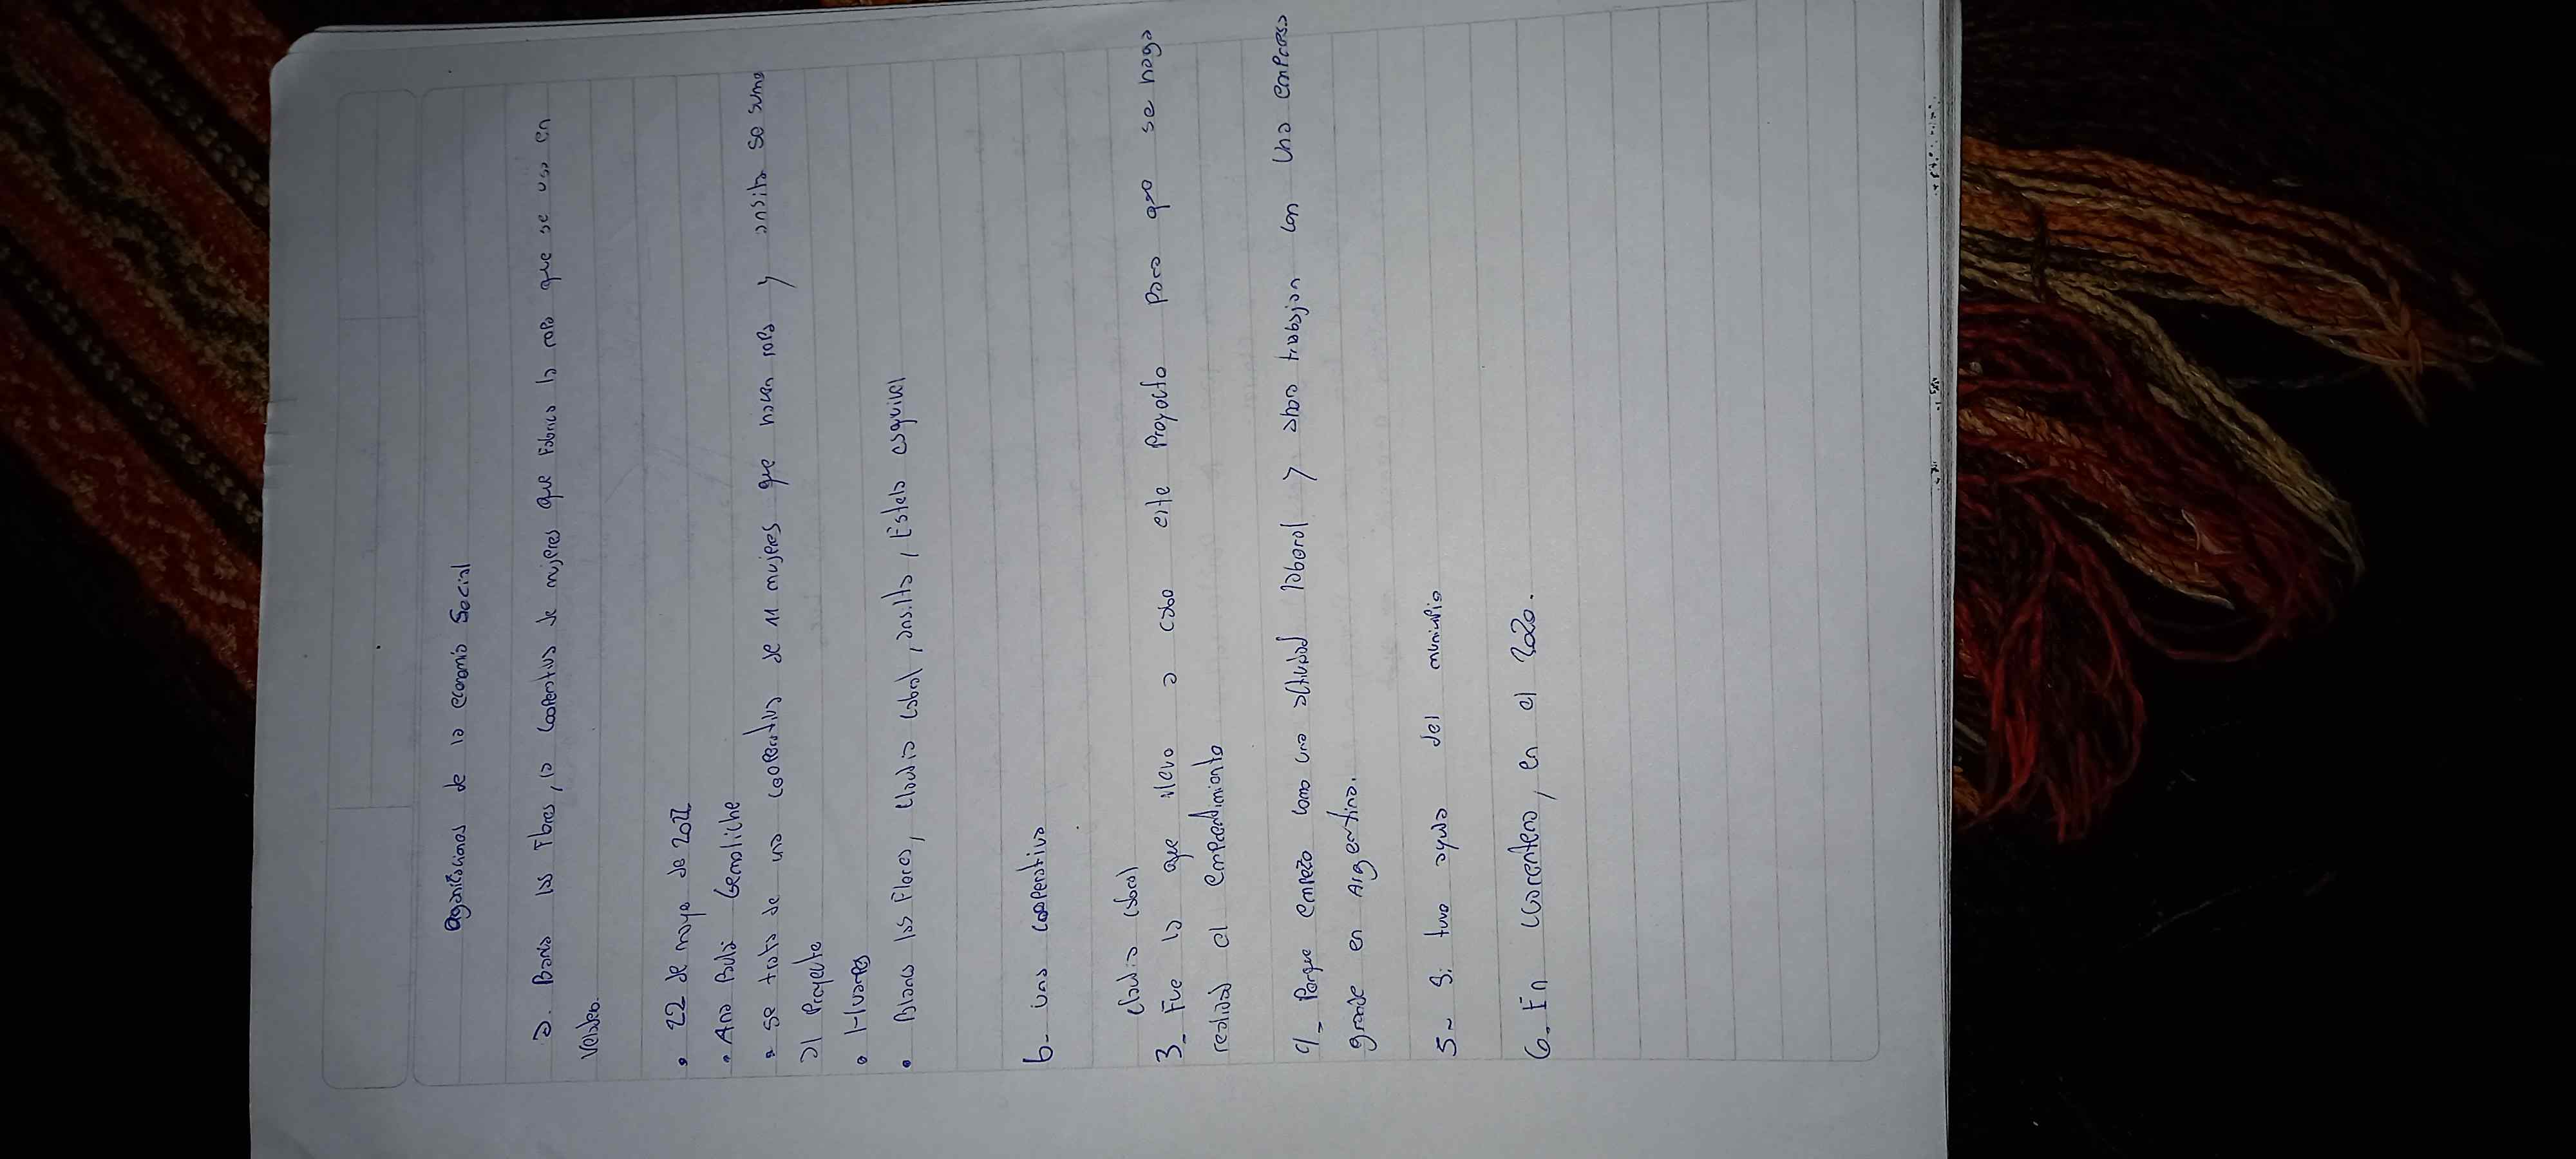 Organizaciones de la economia Social
a. Banco las Flores, la cooperativa de mujeres que Fabrica la ropa que se usa en
Velatro.
• 22 de mayo de 2022
• Ana Paula Gemoliche
• se trata de una cooperativa de 11 mujeres que hacen ropa y ansita se suma
al Proyecto
• Blanca las Flores, Claudia Cabral, ansilta, Estela esquivel
b- una cooperativa
Claudia Cabral
3- Fue la que llevo a cabo este Proyecto Para que se haga
realidad el Emprendimiento
4- Porque empezo como una actividad laboral y ahora trabajan con una empresa
grande en Argentina.
5- Si tuvo ayuda del municipio
6- En cuarentena, en el 2020.